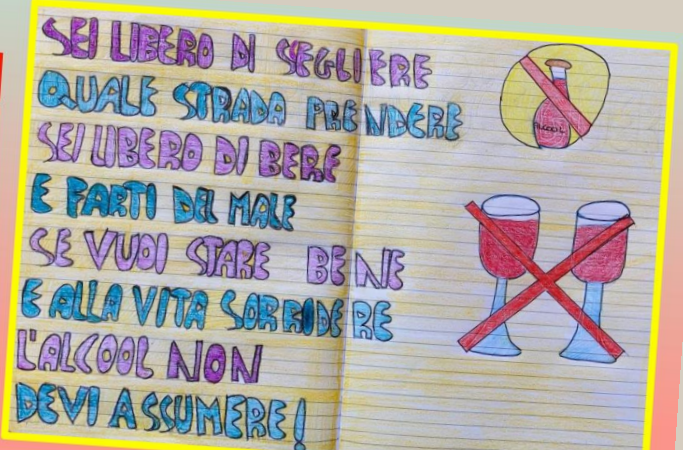 SEI LIBERO DI SEGLIERE
QUALE STRADA PRENDERE
SEI LIBERO DI BERE
E FARTI DEL MALE
SE VUOI STARE BENE
E ALLA VITA SORRIDERE
L'ALCOOL NON
DEVI ASSUMERE!
ALCOOL